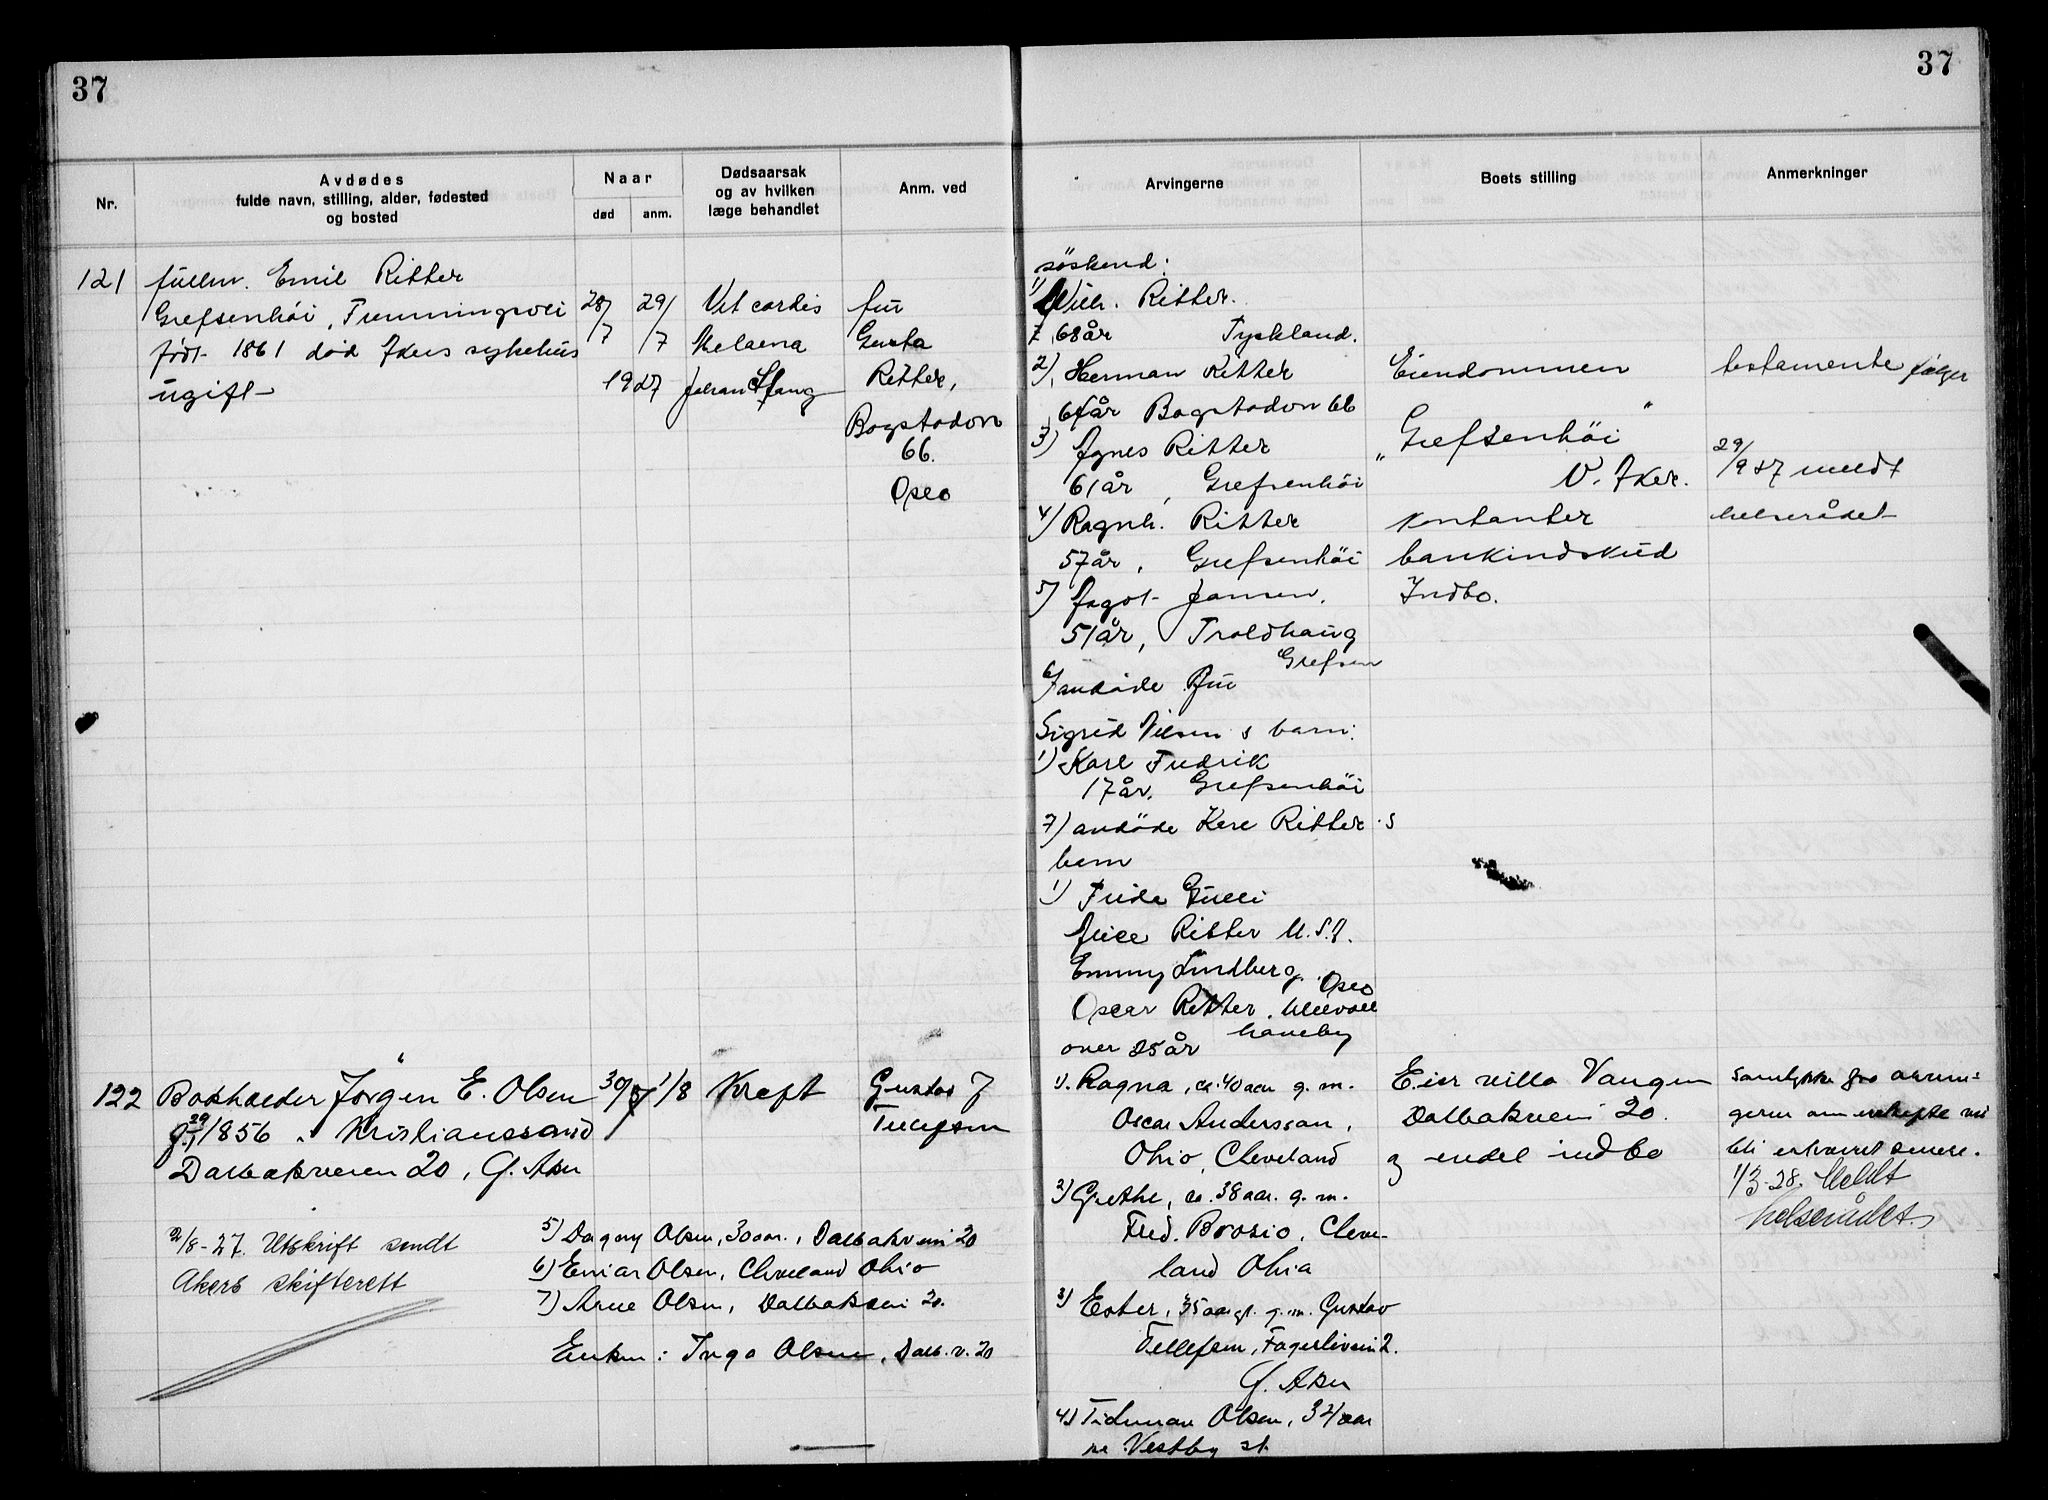 37
37
Nr.
Avdødes
fulde navn, stilling, alder, fødested
og bosted
Naar
død
anm.
Dødsaarsak
og av hvilken
læge behandlet
Anm. ved
Arvingerne
Boets stilling
Anmerkninger
121
fullm. Emil Ritter
Grefsenhöi,
født 1861 død Akers sykehus
ugift
28/7
29/7
1927
Vit cordis
Melaena
Johan
fru
Ritter,
Bogstadvn
66.
Oslo
søskend:
1) Wilh. Ritter.
68 år Tyskland.
2) Herman Ritter
år Bogstadvn 66
3) Agnes Ritter
61 år, Grefsenhöi
4) Ragnh. Ritter
57 år, Grefsenhöi
5) Jansen,
51 år, Troldhaug
Grefsen
6) avdöde fru
Sigrid s barn:
1) Karl Fredrik
17 år, Grefsenhöi
7) avdöde Ritter s
barn
1) Frida
Alice Ritter U.S.A.
Emmy Lindberg Oslo
Oscar Ritter, Ullevål
haveby
over 25 år
Eiendommen
"Grefsenhöi"
V. Aker.
Kontanter
bankindskud
Indbo.
testamente følger
29/9 27 meldt
helserådet
122
Bokholder Jørgen E. Olsen
f. 29/1 1856 i Kristianssand
Dalbakveien 20, Ø. Aker
30/7
1/8
Kræft
Gustav J
2/8-27. Utskrift sendt
Akers skifterett
5) Dagny Olsen, 30 aar., Dalbakvein 20
6) Einar Olsen, Cleveland Ohio
7) Arne Olsen, Dalbakvein 20.
Enken: Inga Olsen, Dalb.v. 20
1. Ragna, ca. 40 aar g.m.
Oscar Andersson,
Ohio, Cleveland
2) Grethe, ca. 38 aar. g.m.
Fred. Brosio, Cleve-
land Ohio
3) Ester, 35 aar gl. g.m. Gustav
Tellefsen, Fagerlivein 2.
Ø. Aker
4) Tideman Olsen, 32 aar
pr. Vestby st.
Eier villa Vangen
Dalbakvein 20.
og endel indbo
Samtykke fra arvin-
gerne om uskifte vil
bli erhvervet senere.
1/3-28. Meldt
helserådet.